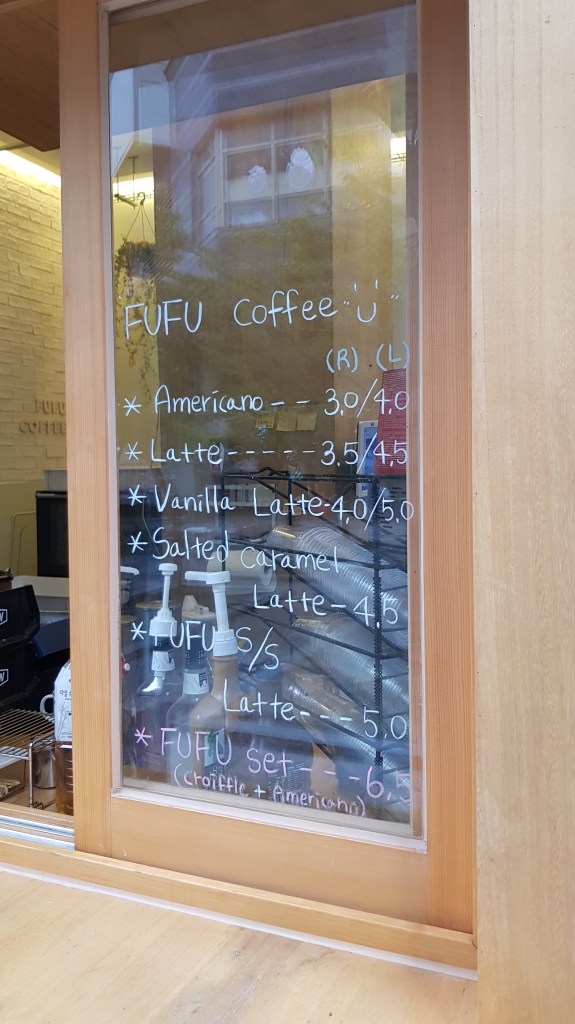 FUFU Coffee
(R) (L)
* Americano -- 3,0/4,0
* Latte ----- 3,5/4,5
* Vanilla Latte - 4,0/5,0
* Salted caramel
Latte - 4,5
* FUFU S/S
Latte --- 5,0
* FUFU Set --- 6,5
(croiffle + Americano)
FUFU
COFFEE